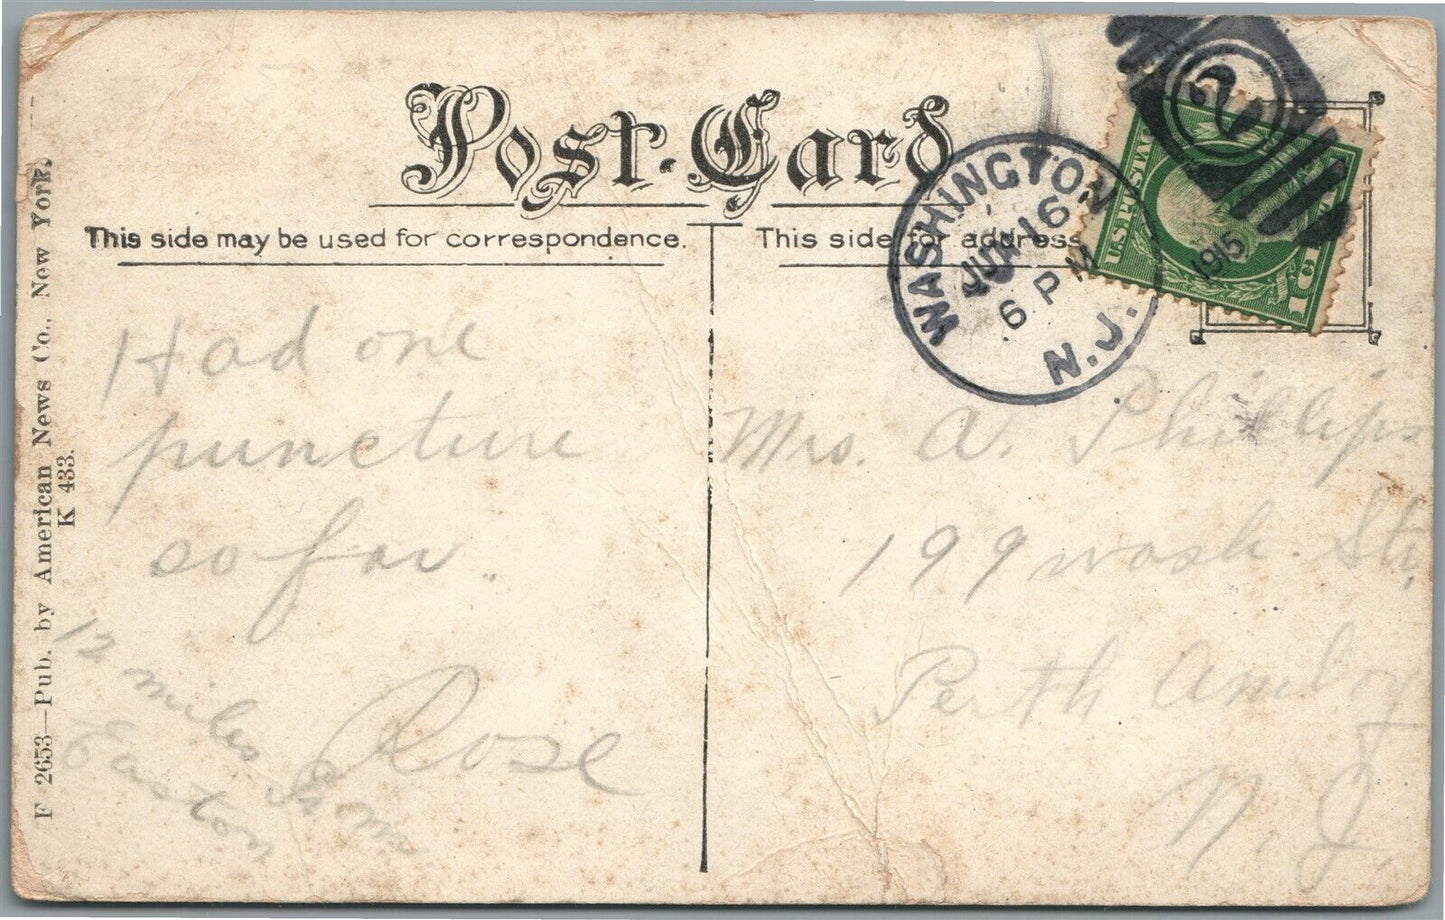 Post Card
This side may be used for correspondence.
This side for address
WASHINGTON
JUN 16
6 PM
1915
N.J.
2
U.S. POSTAGE
1 C
Had one
puncture
so far.
Rose
12 miles from
Easton
Mrs. A. Phillips
199 Wash. Str.
Perth Amboy
N. J.
F 2653—Pub. by American News Co., New York.
K 433.